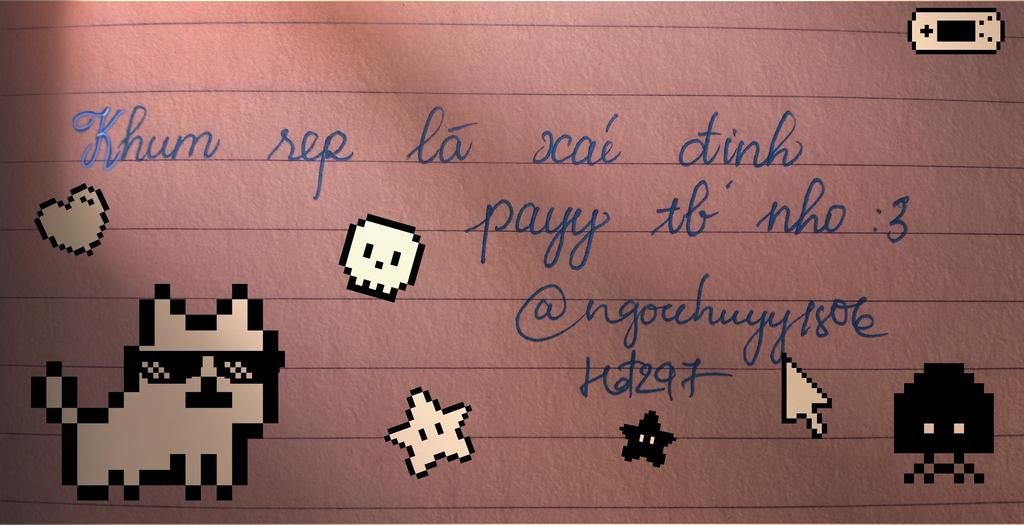 Khum rep là xaé định
payy tb nho :3
@ngocchuyy1806
Hd297